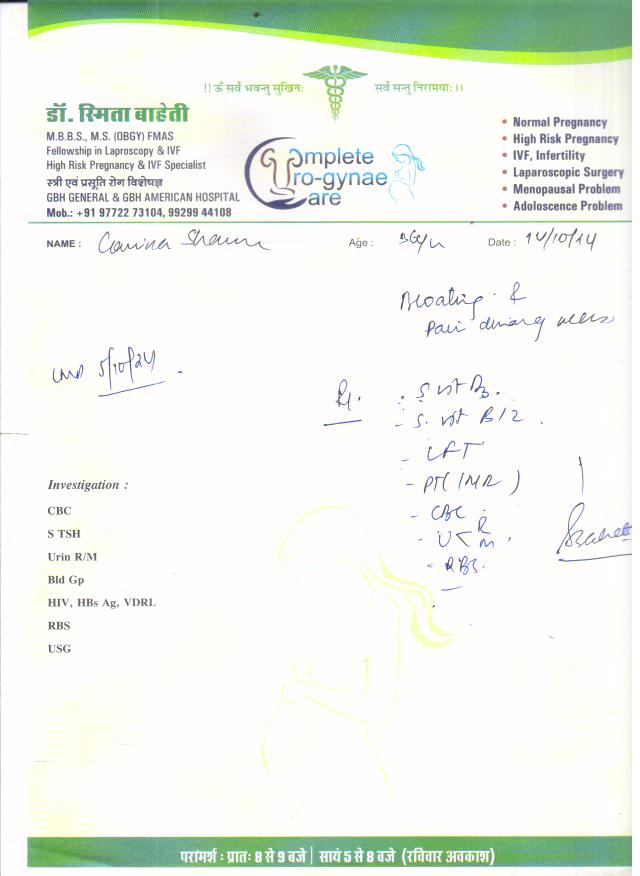 !! ॐ सर्वे भवन्तु सुखिनः सर्वे सन्तु निरामयाः ।।
डॉ. स्मिता बाहेती
M.B.B.S., M.S. (OBGY) FMAS
Fellowship in Laproscopy & IVF
High Risk Pregnancy & IVF Specialist
स्त्री एवं प्रसूति रोग विशेषज्ञ
GBH GENERAL & GBH AMERICAN HOSPITAL
Mob.: +91 97722 73104, 99299 44108
Complete
Uro-gynae
Care
• Normal Pregnancy
• High Risk Pregnancy
• IVF, Infertility
• Laparoscopic Surgery
• Menopausal Problem
• Adoloscence Problem
NAME : Age : Date : 14/10/24
Bloating &
Pain during
LMP 5/10/24
. S vit D3.
- S. vit B12.
- LFT
- PT (INR)
- CBC
- U < R M
- RBS.
Investigation :
CBC
S TSH
Urin R/M
Bld Gp
HIV, HBs Ag, VDRL
RBS
USG
परामर्श : प्रातः 8 से 9 बजे | सायं 5 से 8 बजे (रविवार अवकाश)